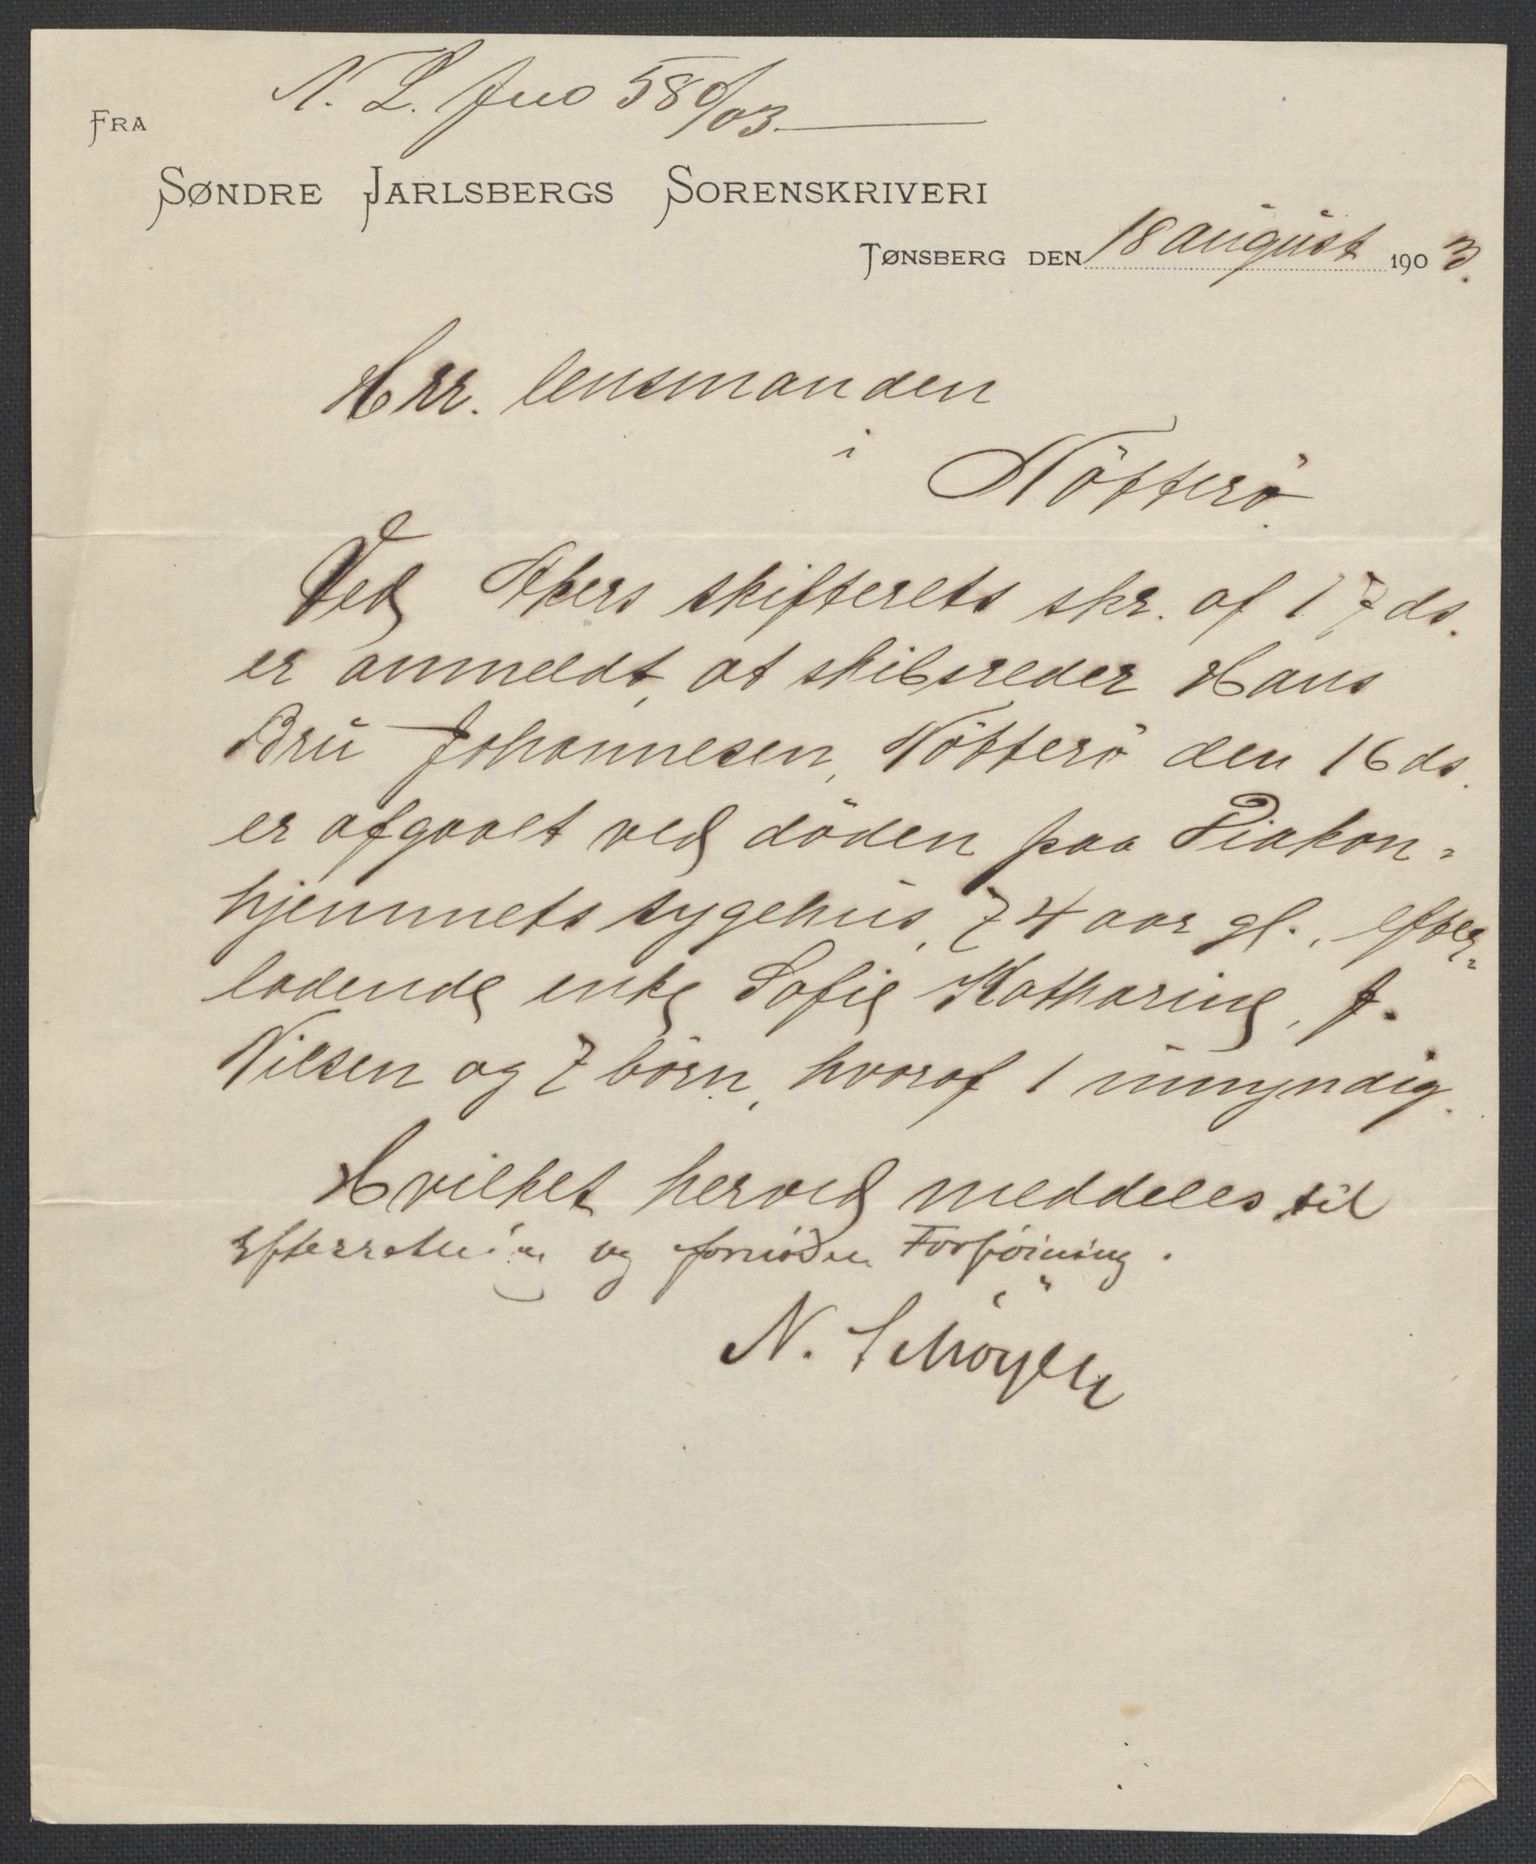 N. L. Jno 580/03.
FRA
SØNDRE JARLSBERGS SORENSKRIVERI
TØNSBERG DEN 18 august 1903.
Hrr. lensmanden
i
Nötterö.
Ved Akers skifterets skr. af 17 ds.
er anmeldt, at skibsreder Hans
Bru Johannesen, Nötterö den 16 ds.
er afgaaet ved döden paa Diakon-
hjemmets sygehus, 74 aar gl., efter-
ladende enke Sofie Katharine, f.
Nilsen og 7 börn, hvoraf 1 umyndig.
Hvilket herved meddeles til
Efterretning og fornöden Forföining.
N. Schöyen